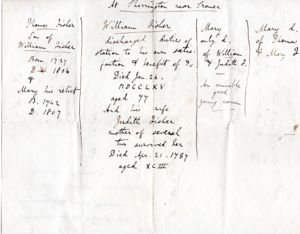 At Sherrington near Cromer
Thomas Fisher
Son of
William Fisher
Born 1727
Died 1806
&
Mary his relict
B. 1742
D. 1807
William Fisher
discharged duties of
station to his own satis-
faction & benefit of &c
Died Jan 26.
MDCCLXV
aged 77
And his wife
Judith Fisher
mother of several
two survived her
Died Apr. 21. 1787
aged XCIII
Mary
only d.
of William
& Judith F.
An amiable
good
young woman
Mary d.
of Thomas
& Mary F